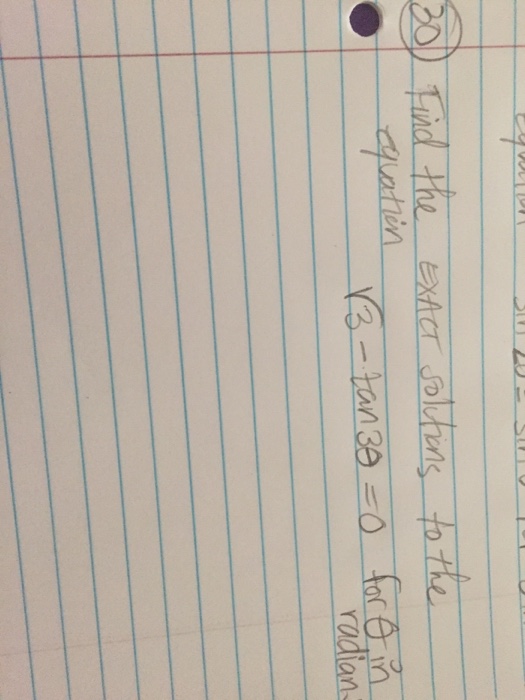 equation sin 2θ = sin θ for
30 Find the EXACT solutions to the
equation √3 - tan3θ = 0 for θ in
radian